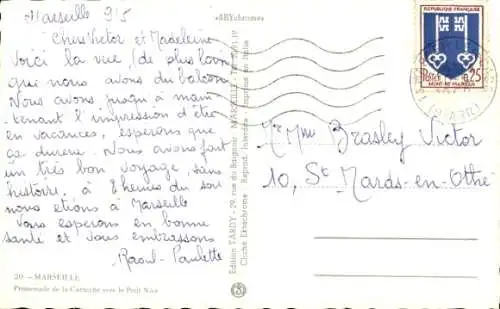 Marseille 9/5
Chers Victor et Madeleine
Voici la vue, de plus loin
que nous avons du balcon
Nous avons jusqu'à main
tenant l'impression d'être
en vacances, esperons que
ça durera. Nous avons fait
un très bon voyage, sans
histoire, à 8 heures du soir
nous etions à Marseille
Vous esperons en bonne
santé et vous embrassons
Raoul - Paulette
20. — MARSEILLE
Promenade de la Corniche vers le Petit Nice
Edition TARDY - 29, rue du Baignoir - MARSEILLE
Cliché Ektachrome - Reprod. Interdite - Imprimé en Italie
REPUBLIQUE FRANÇAISE
POSTES
0,25
MONT-DE-MARSAN
Mr Mme Brasley Victor
10, St Mards-en-Othe